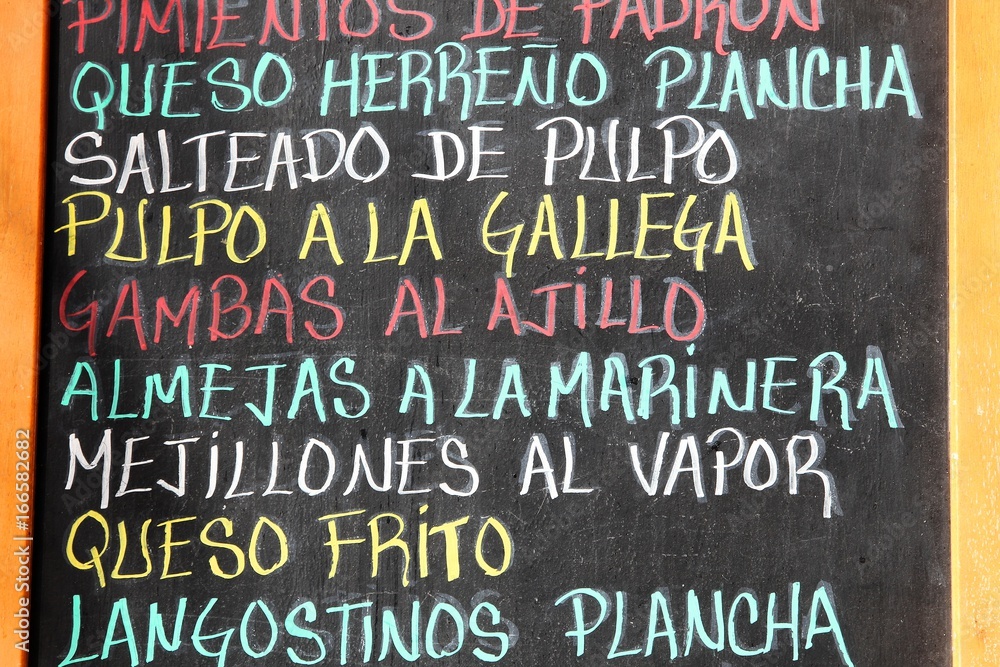 PIMIENTOS DE PADRÓN
QUESO HERREÑO PLANCHA
SALTEADO DE PULPO
PULPO A LA GALLEGA
GAMBAS AL AJILLO
ALMEJAS A LA MARINERA
MEJILLONES AL VAPOR
QUESO FRITO
LANGOSTINOS PLANCHA
Adobe Stock | #166582682